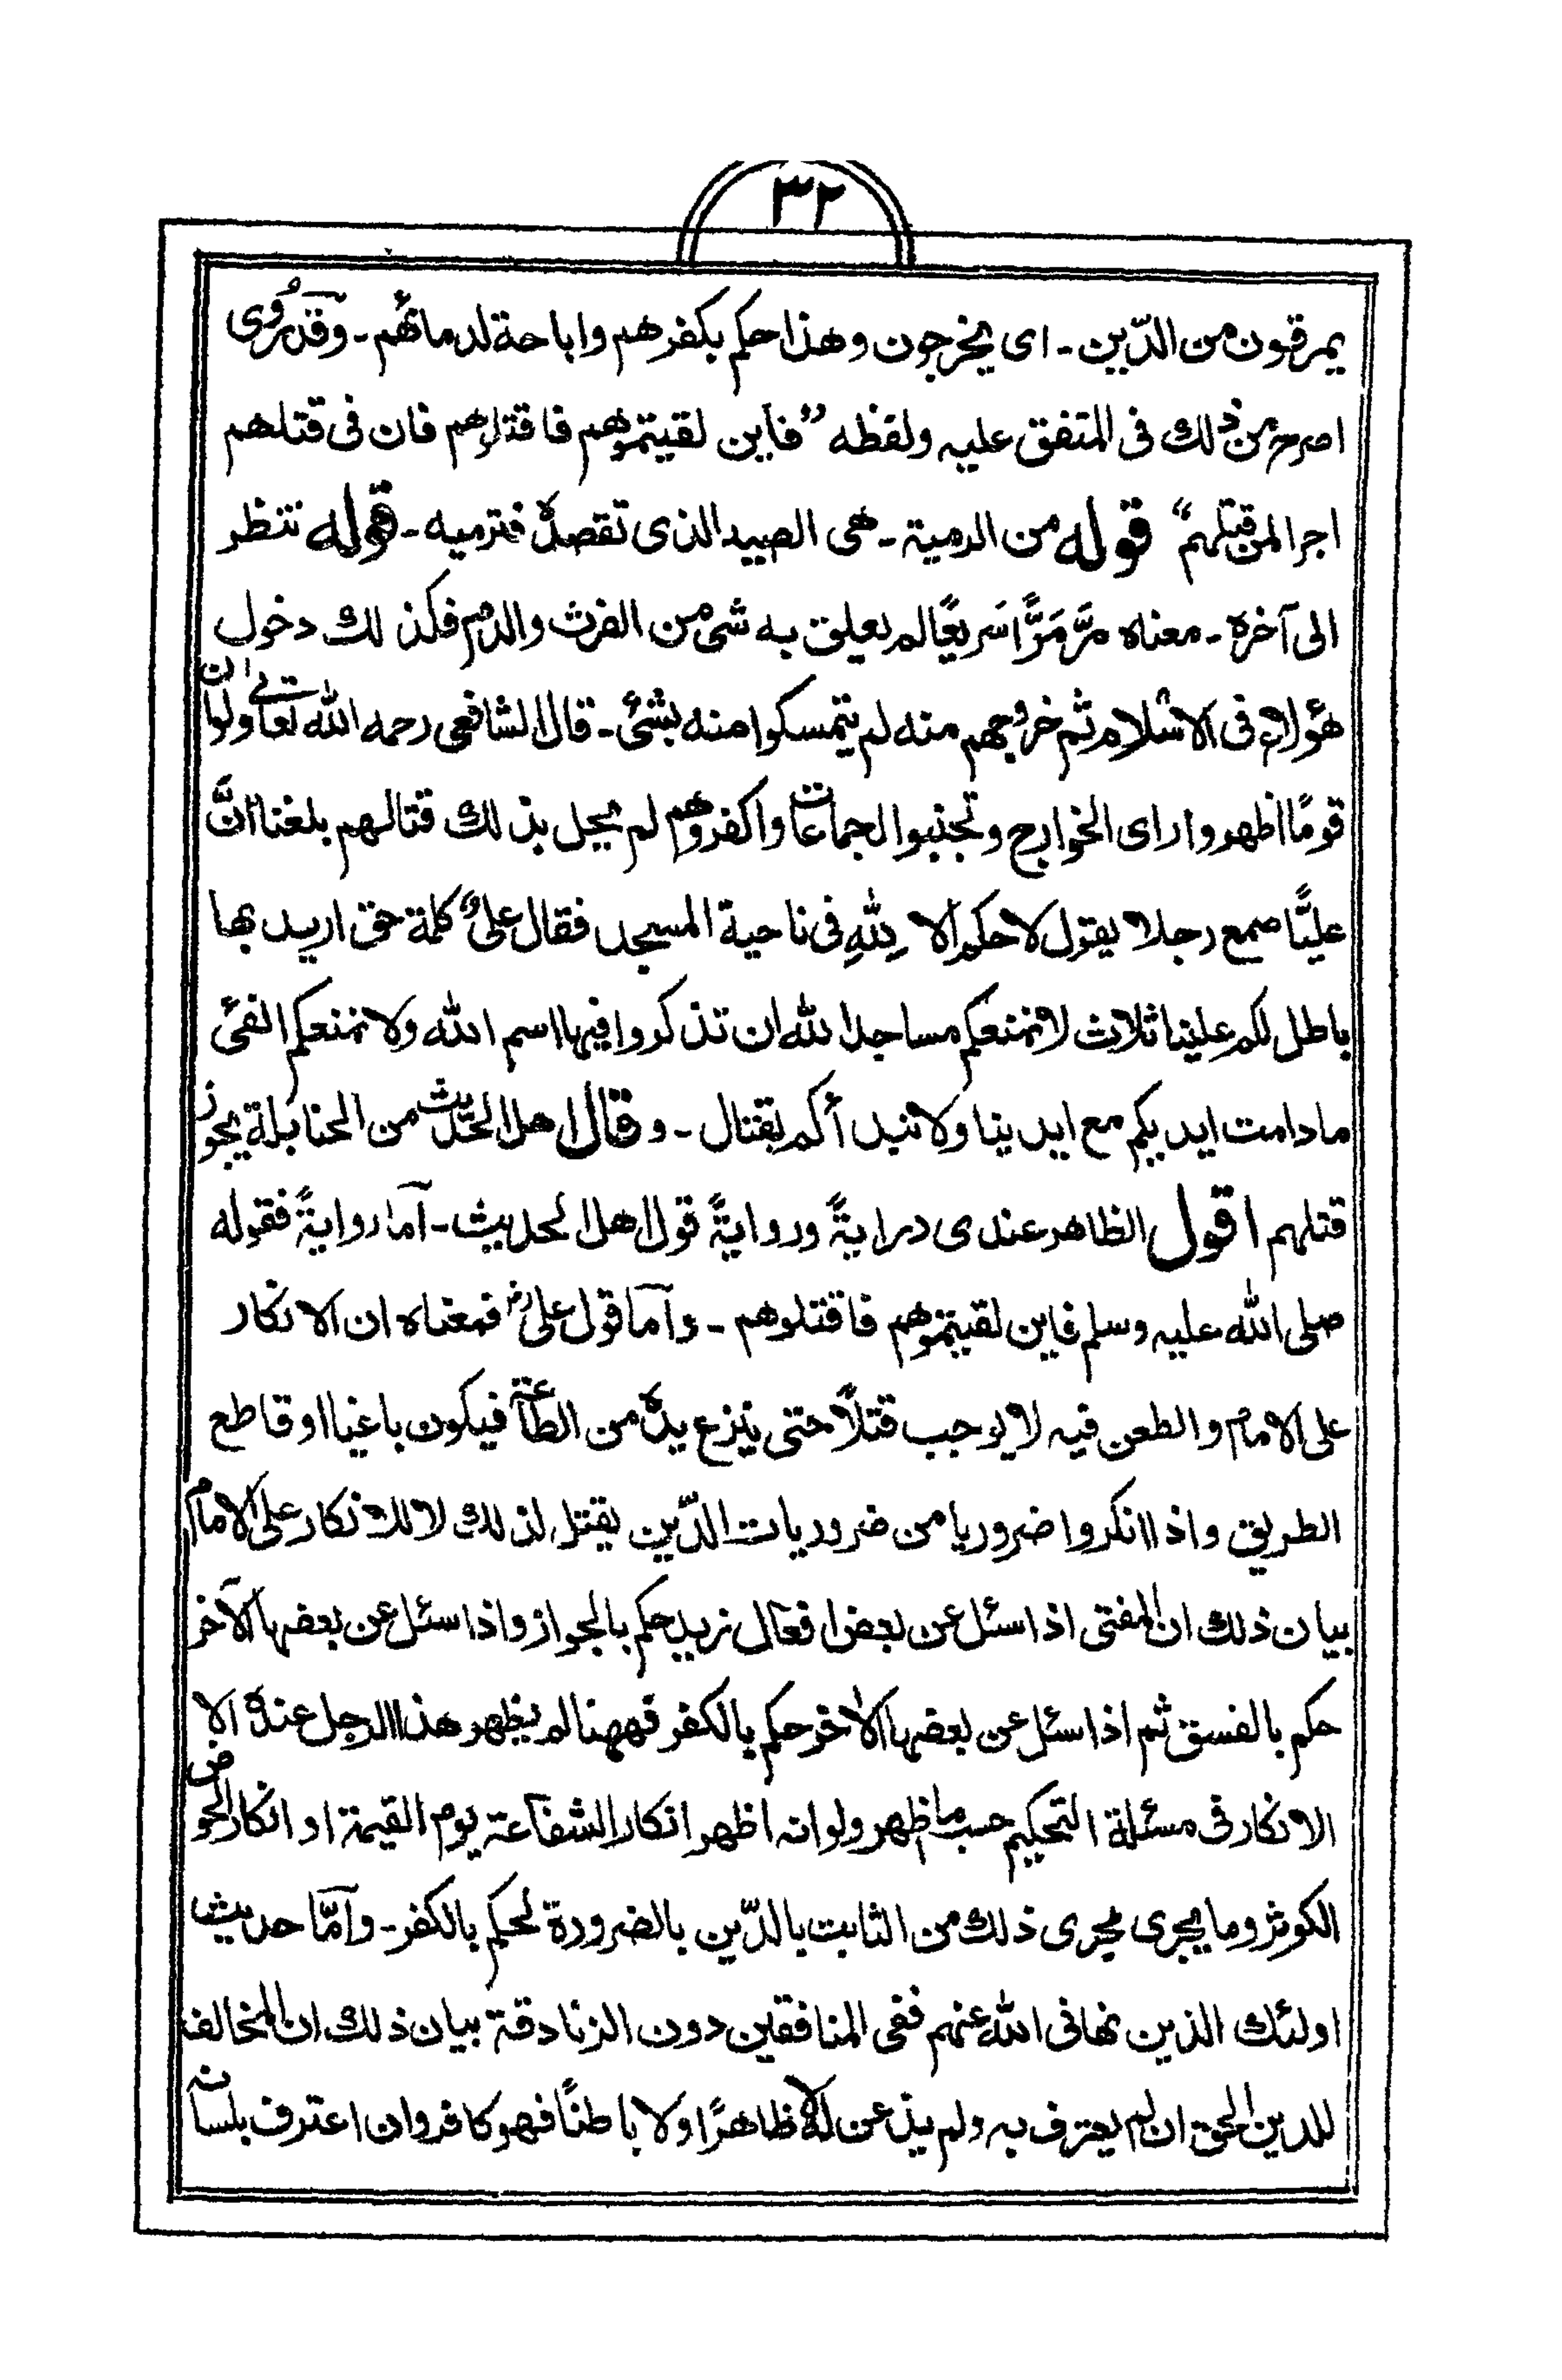 ٣٢
يمرقون من الدّين ـ اى يخرجون وهذا حكم بكفرهم واباحة لدمائهم ـ وقد رُوى
اصرح من ذلك فى المتفق عليه ولفظه "فاين لقيتموهم فاقتلوهم فان فى قتلهم
اجرا لمن قتلهم" قوله من الرمية ـ هى الصيد الذى تقصده فترميه ـ قوله تنظر
الى آخره ـ معناه مرَّ مَرًّا سَريعًا لم يعلق به شئ من الفرث والدم فكذلك دخول
هؤلاء فى الاسلام ثم خروجهم منه لم يتمسكوا منه بشئ ـ قال الشافعى رحمه الله تعالى ولو ان
قومًا اظهروا راى الخوارج وتجنبوا الجماعات واكفروهم لم يحل بذلك قتالهم بلغنا انَّ
عليًّا سمع رجلا يقول لا حكم الا لِلّٰهِ فى ناحية المسجد فقال علىؓ كلمة حق اريد بها
باطل لكم علينا ثلاث لا نمنعكم مساجد الله ان تذكروا فيها اسم الله ولا نمنعكم الفئ
ما دامت ايديكم مع ايدينا ولا نبدأكم بقتال ـ وقال اهل الحديث من الحنابلة يجوز
قتلهم اقول الظاهر عندى درايةً وروايةً قول اهل الحديث ـ آما روايةً فقوله
صلى الله عليه وسلم فاين لقيتموهم فاقتلوهم ـ وآما قول علىؓ فمعناه ان الانكار
على الامام والطعن فيه لا يوجب قتلًا حتى ينزع يده من الطاعة فيكون باغيا او قاطع
الطريق واذا انكروا ضروريا من ضروريات الدّين يقتل لذلك لا للانكار على الامام
بيان ذلك ان المفتى اذا سئل عن بعض افعال زيد حكم بالجواز واذا سئل عن بعضها الآخر
حكم بالفسق ثم اذا سئل عن بعضها الاخر حكم بالكفر فههنا لم يظهر هذا الرجل عنده الا
الانكار فى مسئلة التحكيم حسب ما ظهر ولو انه اظهر انكار الشفاعة يوم القيمة او انكار الحوض
الكوثر وما يجرى مجرى ذلك من الثابت بالدّين بالضرورة لحكم بالكفر ـ وآمّا حديث
اولئك الذين نهانى الله عنهم ففى المنافقين دون الزنادقة بيان ذلك ان المخالف
للدين الحق ان لم يعترف به ولم يذعن له لا ظاهرًا ولا باطنًا فهو كافر وان اعترف بلسانه